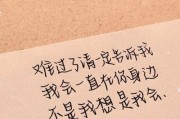 难过了请一定告诉我
我会一直在你身边
不是我想是我会.